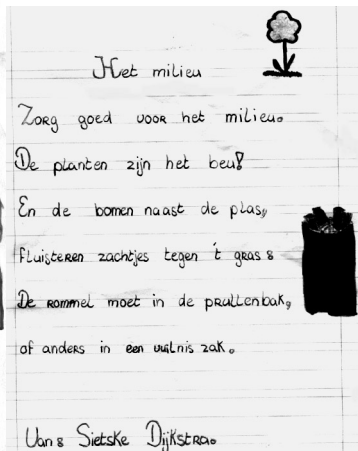 Het milieu
Zorg goed voor het milieu.
De planten zijn het beu!
En de bomen naast de plas,
fluisteren zachtjes tegen 't gras:
De rommel moet in de prullenbak,
of anders in een vuilnis zak.
Van: Sietske Dijkstra.